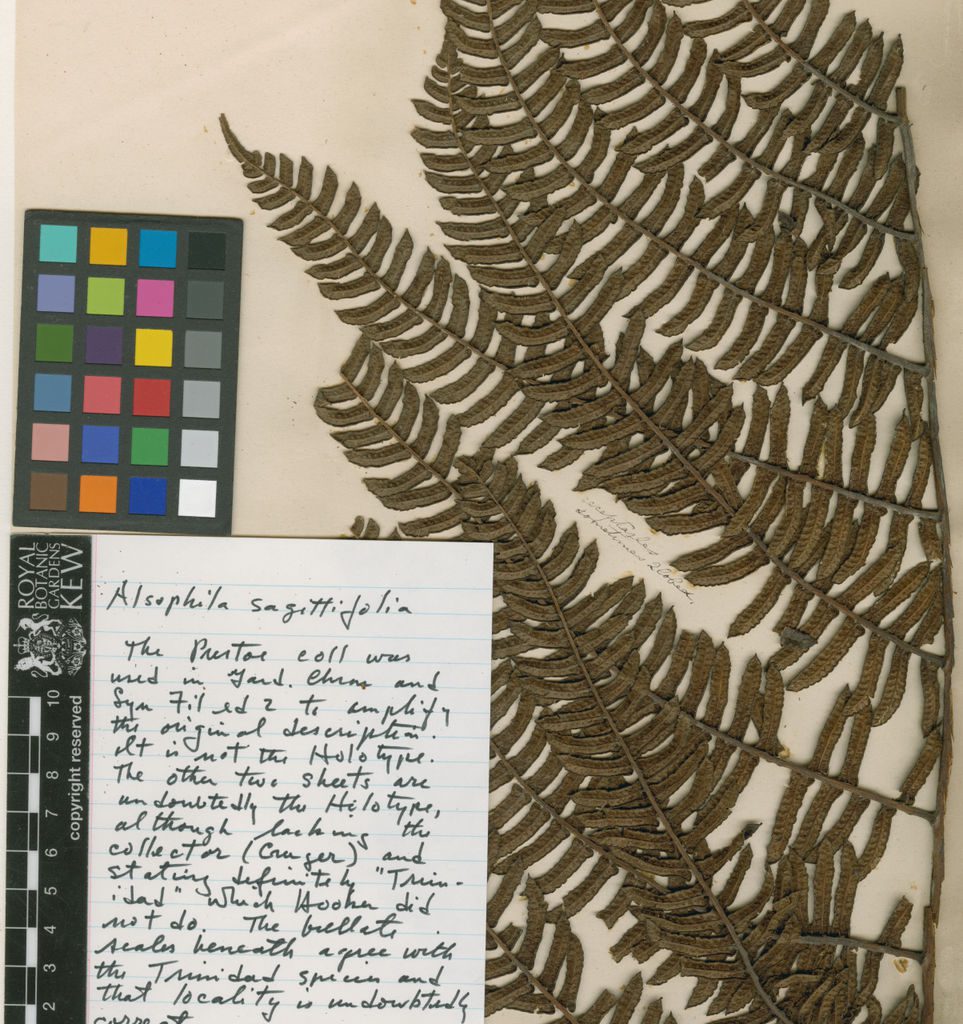 Alsophila sagittifolia
The Prestoe coll was
used in Gard. Chron and
Syn Fil ed 2 to amplify
the original description.
It is not the Holotype.
The other two sheets are
undoubtedly the Hilotype,
although lacking the
collector (Cruger) and
stating definitely "Trin-
idad" which Hooker did
not do. The bullate
scales beneath agree with
the Trinidad specimen and
that locality is undoubtedly
correct
sometimes globose
ROYAL
BOTANIC
GARDENS
KEW
copyright reserved
10
9
8
7
6
5
4
3
2